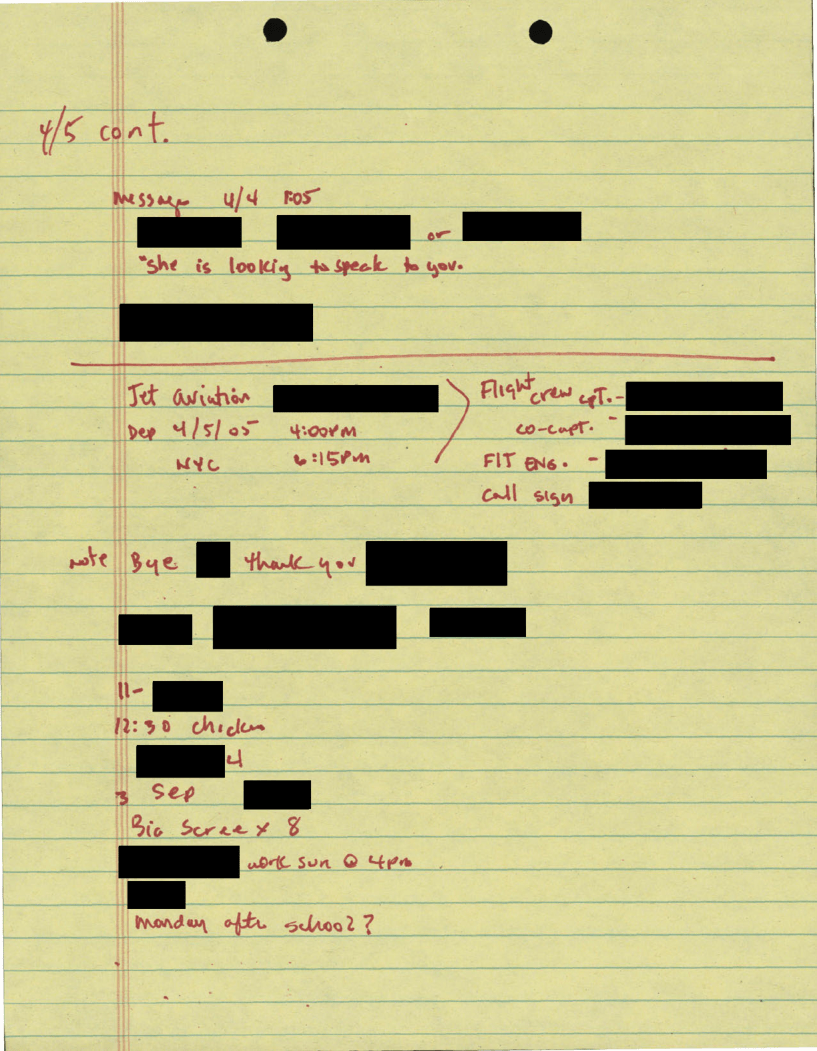 4/5 cont.
Message 4/4 1:05
or
"She is lookig to speak to you.
Jet Aviation
Dep 4/5/05 4:00PM
NYC 6:15PM
Flight crew cpt. -
co-capt. -
FIT ENG. -
Call sign
note Bye thank you
11-
12:30 chicken
4
3 Sep
Big Scree x 8
work sun @ 4pm
Monday after school?